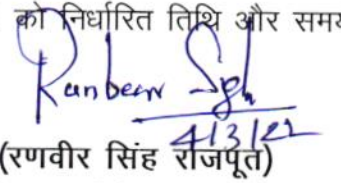 को निर्धारित तिथि और समय
Ranbeer Sgh
4/3/22
(रणवीर सिंह राजपूत)